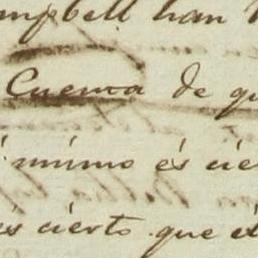 mpbell han
Cuenca de qu
mismo és cie
és cierto que él